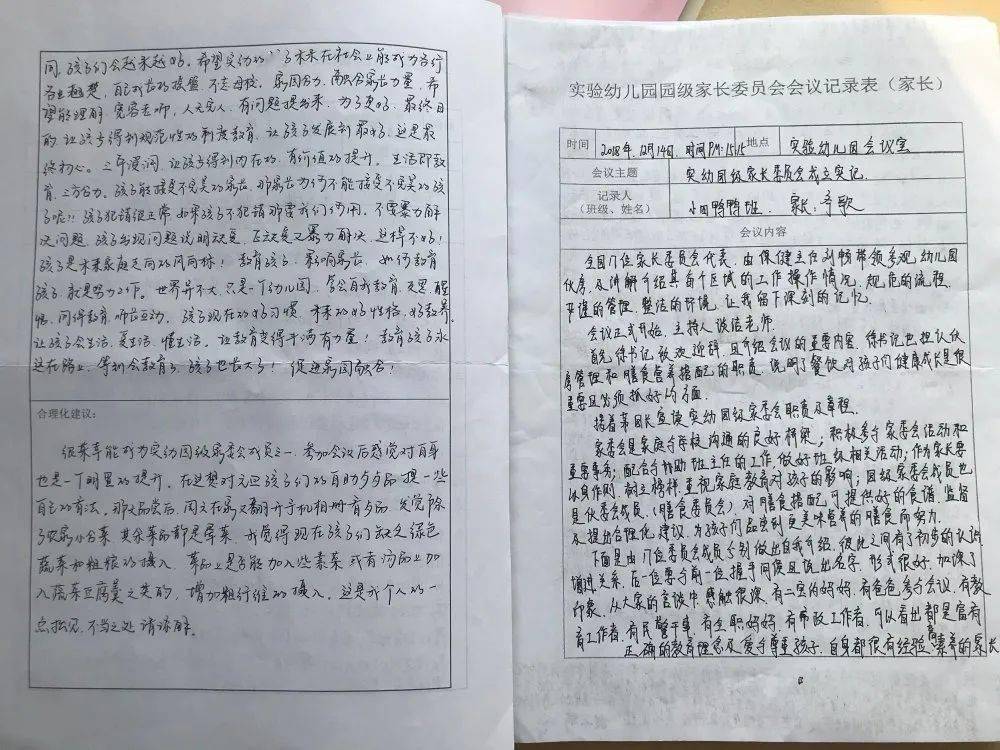 同，孩子们会越来越好。希望实幼的孩子未来在社会上能成为各行
各业翘楚，自己成长的
望能理解，宽容老师，人无完人，有问题提出来，为了更好，最终目
的，让孩子得到规范性的制度教育，让孩子发展到最好，这是最
终初心。三年浸润，让孩子得到内在的，有价值的提升。生活即教
育，三方合力。孩子能接受不完美的家长，那家长为何不能接受不完美的孩
子呢？！孩子犯错很正常，如果孩子不犯错那要我们何用，不要暴力解
决问题，孩子出现问题说明缺爱，在缺爱又暴力解决，这样不好！
孩子是未来家庭走向的风向标！教育孩子，影响家长，如何教育
孩子，就是努力工作。世界并不大，只是一个幼儿园，学会自我教育，反思，醒
悟，问何教育，师长互动。孩子现在的好习惯，未来的好性格，好教养。
让孩子会生活，爱生活，懂生活。让教育变得干净有力量！教育孩子永
远在路上，等到会教育了，孩子也长大了！促进家园融合！
合理化建议：
很荣幸能成为实幼园级家委会成员之一，参加会议后感觉对自身
也是一个明显的提升。在这想对元旦孩子们的自助夕夕品提一些
自己的看法。那天品尝后，周六在家又翻开手机相册看夕品，发觉除
了农家小炒菜，其余菜品都是荤菜，我觉得现在孩子们缺乏绿色
蔬菜和粗粮的摄入，菜品上是否能加入些素菜或者汤品上加
入蔬菜豆腐羹之类的，增加粗纤维的摄入。这是我个人的一
点拙见，不当之处请谅解。
实验幼儿园园级家长委员会会议记录表（家长）
时间 2018年12月14日，时间PM：15:15 地点 实验幼儿园会议室
会议主题 实幼园级家长委员会成立实记
记录人（班级、姓名） 小四鸭鸭班 家长：李歌
会议内容
全园门位家长委员会代表，由保健主任刘畅带领参观幼儿园
伙房，及讲解介绍其每个区域的工作操作情况，规范的流程，
严谨的管理，整洁的环境，让我留下深刻的记忆。
会议正式开始，主持人谈洁老师。
首先徐书记致欢迎辞，且介绍会议的重要内容，徐书记也担认伙
房管理和膳食营养搭配的职员，说明了餐饮对孩子们健康成长是很
重要且必须抓好的方面。
接着常园长宣读实幼园级家委会职责及章程。
家委会是家庭与学校沟通的良好桥梁；积极参与家委会活动和
重要事务；配合与协助班主任的工作，做好班级相关活动；作为家长要
以身作则，树立榜样，重视家庭教育对孩子的影响；园级家委会成员也
是伙委会成员，（膳食委员会），对膳食搭配，可提供好的食谱，监督
及提出合理化建议，为孩子们品尝到更美味营养的膳食而努力。
下面是由门位委员会成员分别做出自我介绍，彼此之间有了初步的认识
增进关系，后一位要与前一位握手问候且说出名字，形式很好，加深了
印象。从大家的言谈中，感触很深，有二宝的妈妈，有爸爸参与会议，有教
育工作者，有民警干事，有全职妈妈，有市政工作者，可以看出都是富有
正确的教育理念及爱与尊重孩子，自身都很有经验高素养的家长